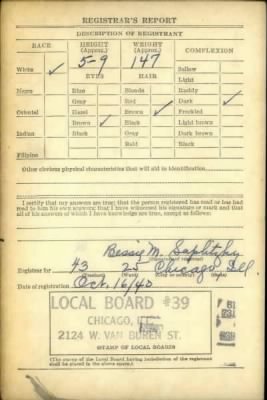 REGISTRAR'S REPORT
DESCRIPTION OF REGISTRANT
RACE HEIGHT (Approx.) WEIGHT (Approx.) COMPLEXION
White ✓ 5-9 147 Sallow
EYES HAIR Light
Negro Blue Blonde Ruddy
Gray Red Dark ✓
Oriental Hazel Brown ✓ Freckled
Brown ✓ Black Light brown
Indian Black Gray Dark brown
Bald Black
Filipino
Other obvious physical characteristics that will aid in identification
I certify that my answers are true; that the person registered has read or has had
read to him his own answers; that I have witnessed his signature or mark and that
all of his answers of which I have knowledge are true, except as follows:
Bessie M.
(Signature of registrar)
Registrar for 43 25 Chicago, Ill.
(Precinct) (Ward) (City or county) (State)
Date of registration Oct. 16/40
LOCAL BOARD #39
CHICAGO, ILL.
2124 W. VAN BUREN ST.
STAMP OF LOCAL BOARD
(The stamp of the Local Board having jurisdiction of the registrant
shall be placed in the above space.)